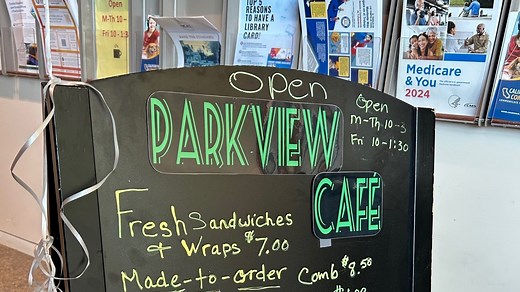 Open
M-Th 10-
Fri 10-1:3
TOP 5
REASONS
TO HAVE A
LIBRARY
CARD!
Medicare
& You
2024
Open
PARKVIEW
CAFÉ
Open
M-Th 10-3
Fri 10-1:30
Fresh Sandwiches
+ Wraps $7.00
Made-to-order Comb $8.50